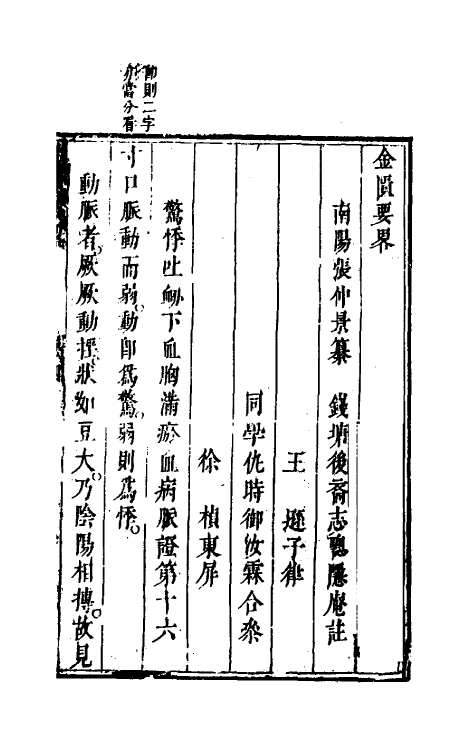 金匱要畧
南陽張仲景纂　錢塘後裔志聰隱庵註
王　遜子律
同學仇時御汝霖合叅
徐　楨東屏
驚悸吐衂下血胸滿瘀血病脈證第十六
寸口脈動而弱。動卽爲驚。弱則爲悸。
動脈者。厥厥動搖。狀如豆大。乃陰陽相搏。故見
卽則二字
亦當分看